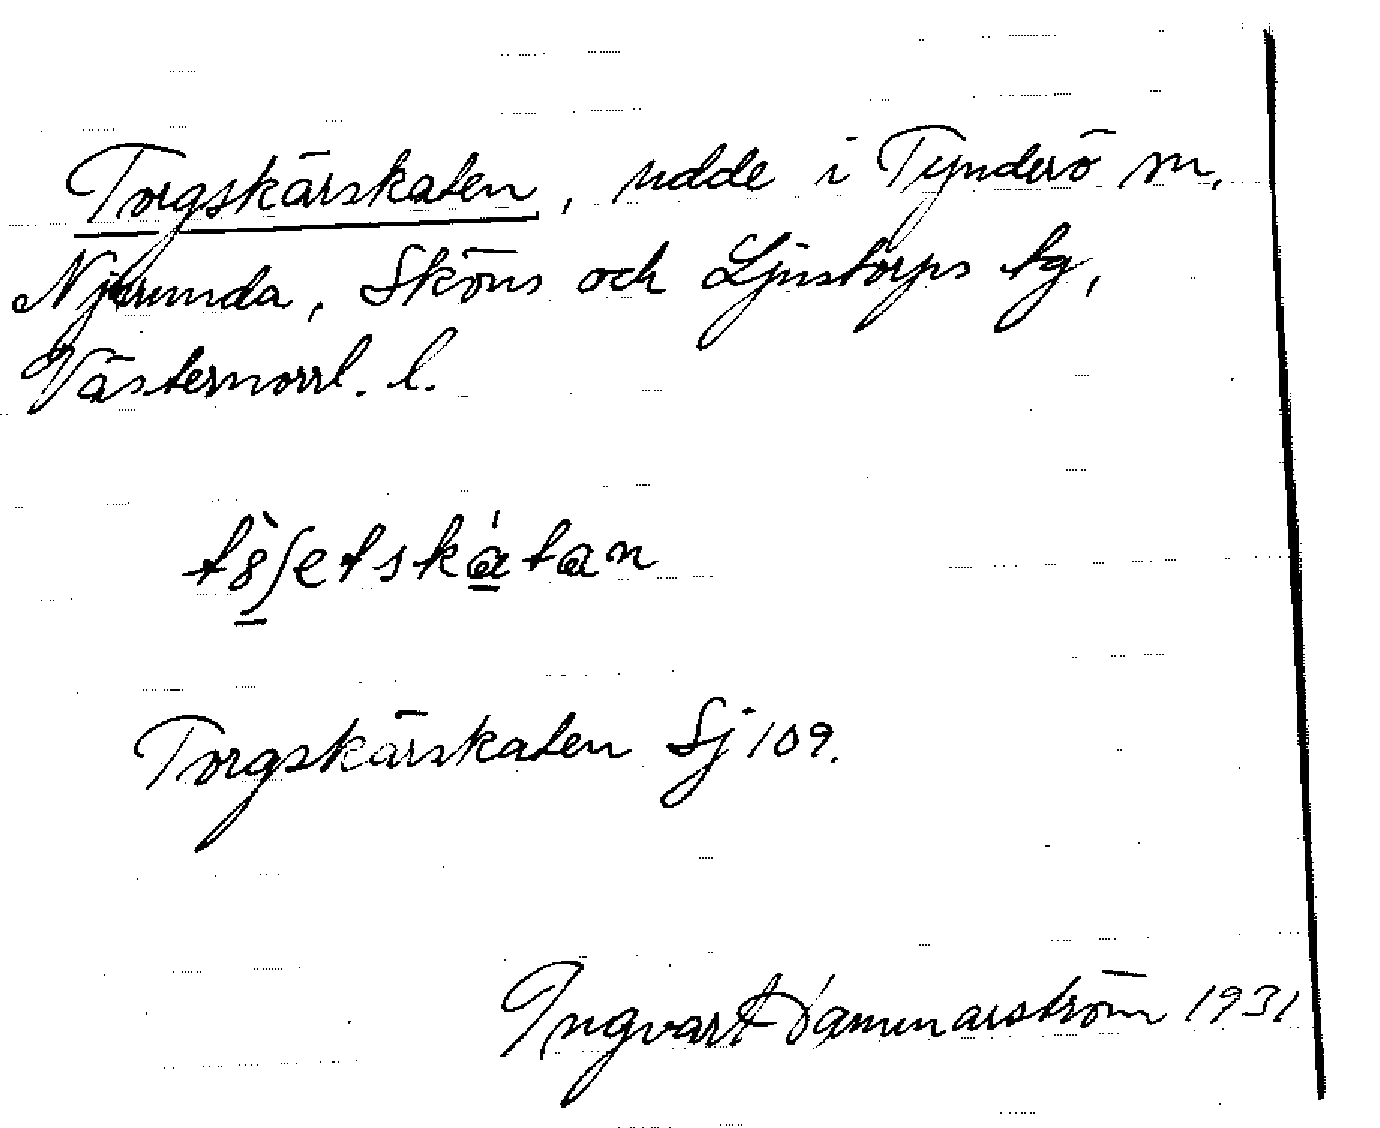 Torgskärskaten, udde i Tynderö sn,
Njurunda, Sköns och Ljustorps tg,
Västernorrl. l.
Torgskärskaten Sj 109.
Ingvart Hammarström 1931